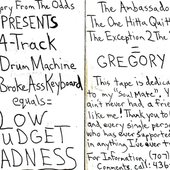 ory From The Odds
PRESENTS
4-Track
Drum Machine
BrokeAssKeyboard
equals=
LOW
UDGET
ADNESS
The Ambassado
The One Hitta Quit
The Exception 2 The
=
GREGORY
This tape is dedica
to my "Soul Mate", Y
ain't never had a frie
like me! Thank you to
and every single perso
who has ever supported
in anything I've ever tr
For Information, (707
Comments, call: 436